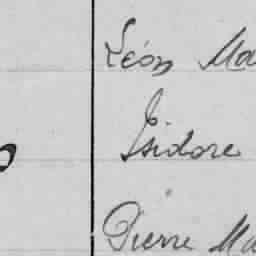 Léon Ma
Isidore
Pierre Ma